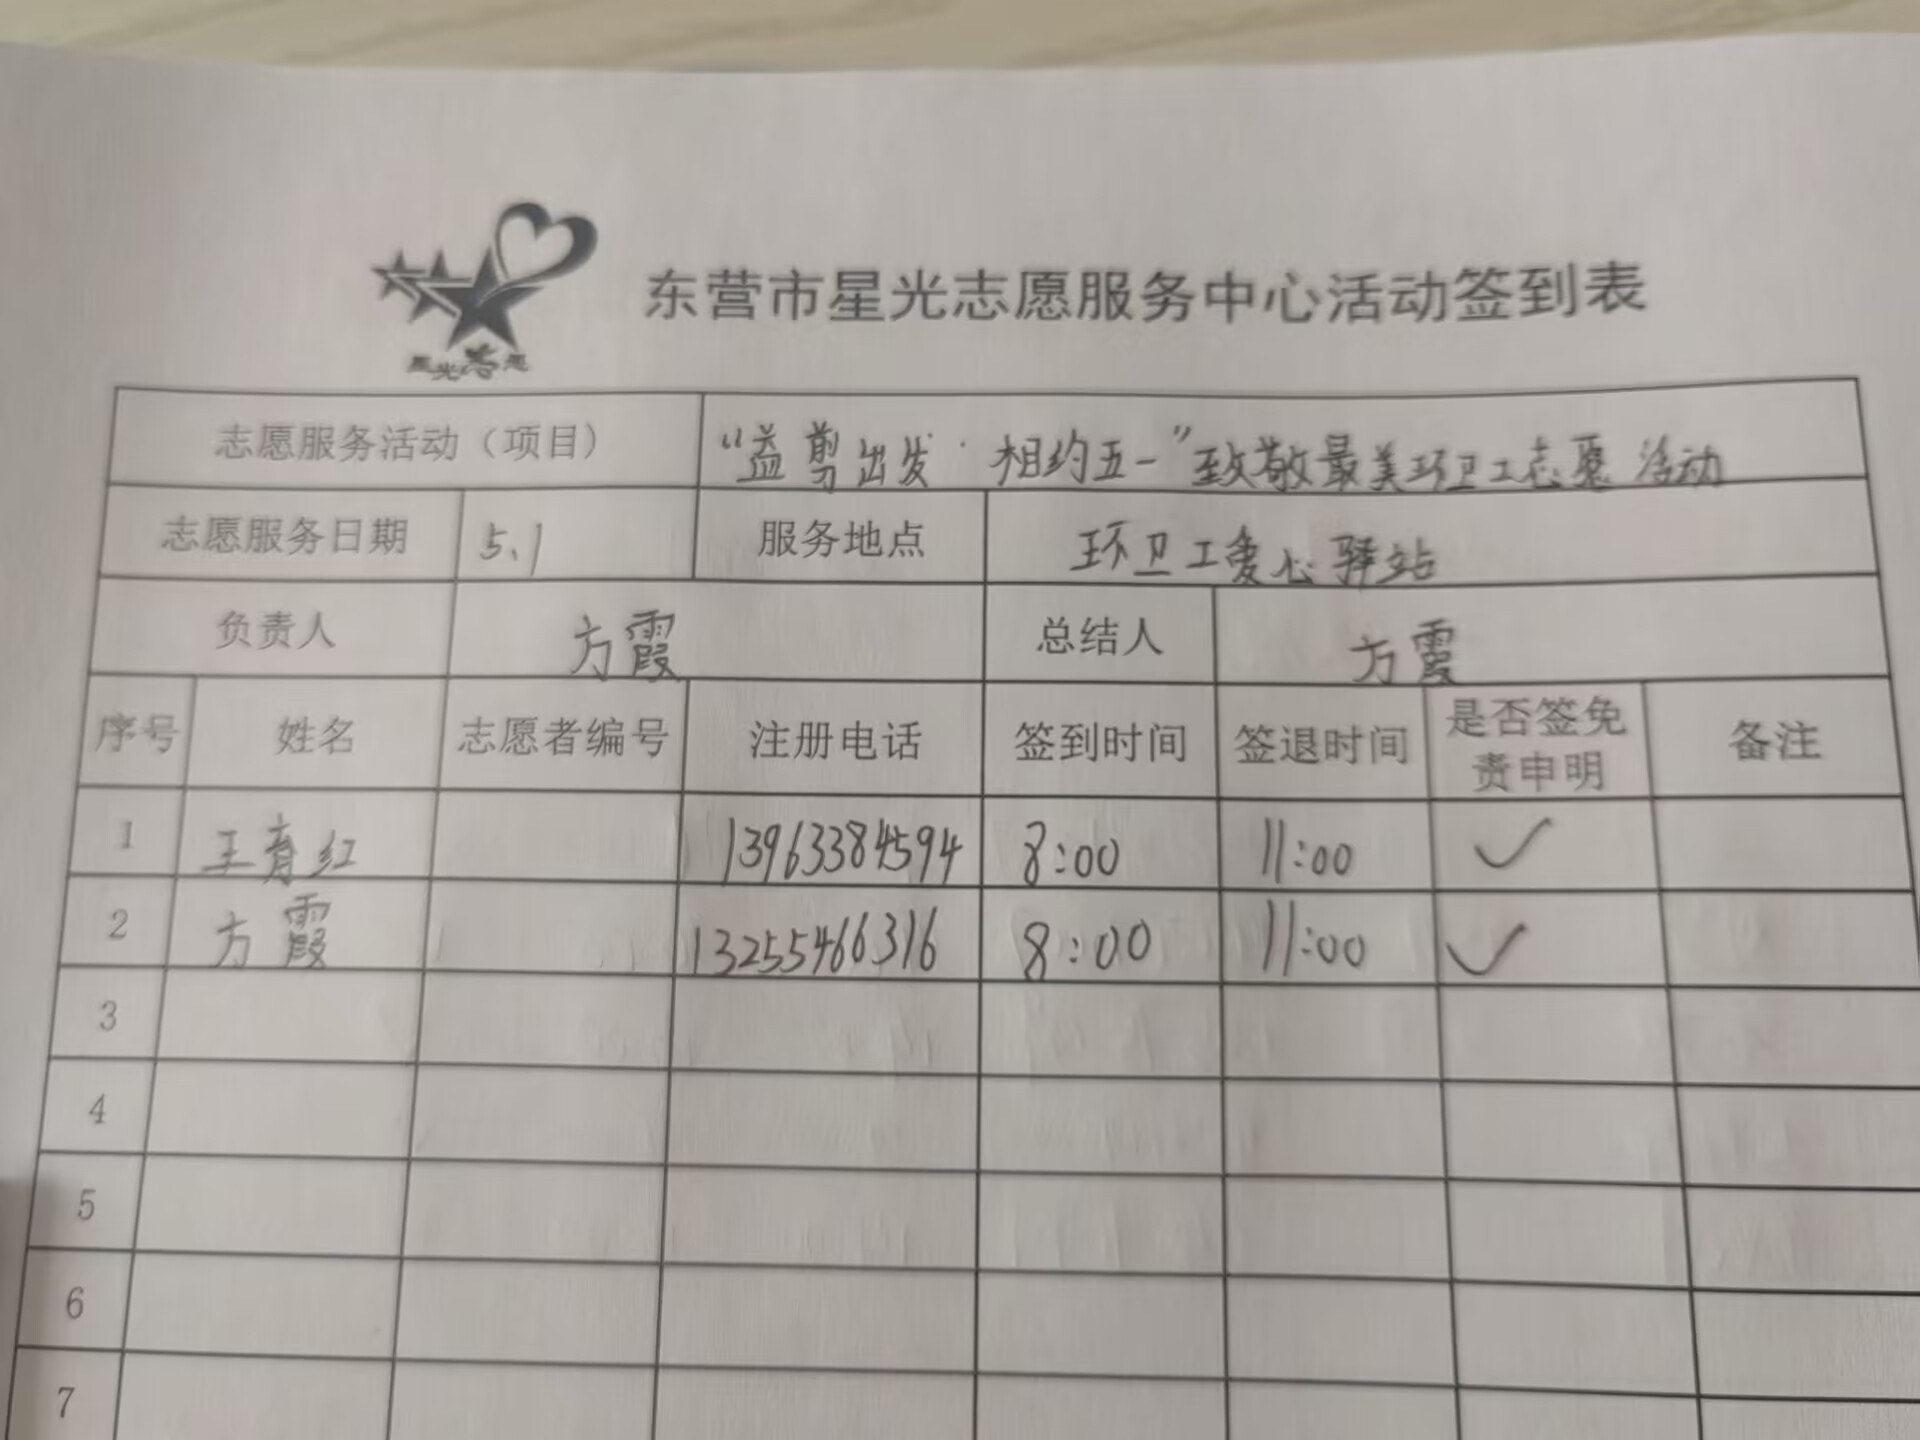 星光志愿
东营市星光志愿服务中心活动签到表
志愿服务活动（项目） “益剪出发·相约五一”致敬最美环卫工志愿活动
志愿服务日期 5.1 服务地点 环卫工爱心驿站
负责人 方霞 总结人 方霞
序号 姓名 志愿者编号 注册电话 签到时间 签退时间 是否签免责申明 备注
1 王育红 13963384594 8:00 11:00 ✓
2 方霞 13255466316 8:00 11:00 ✓
3
4
5
6
7